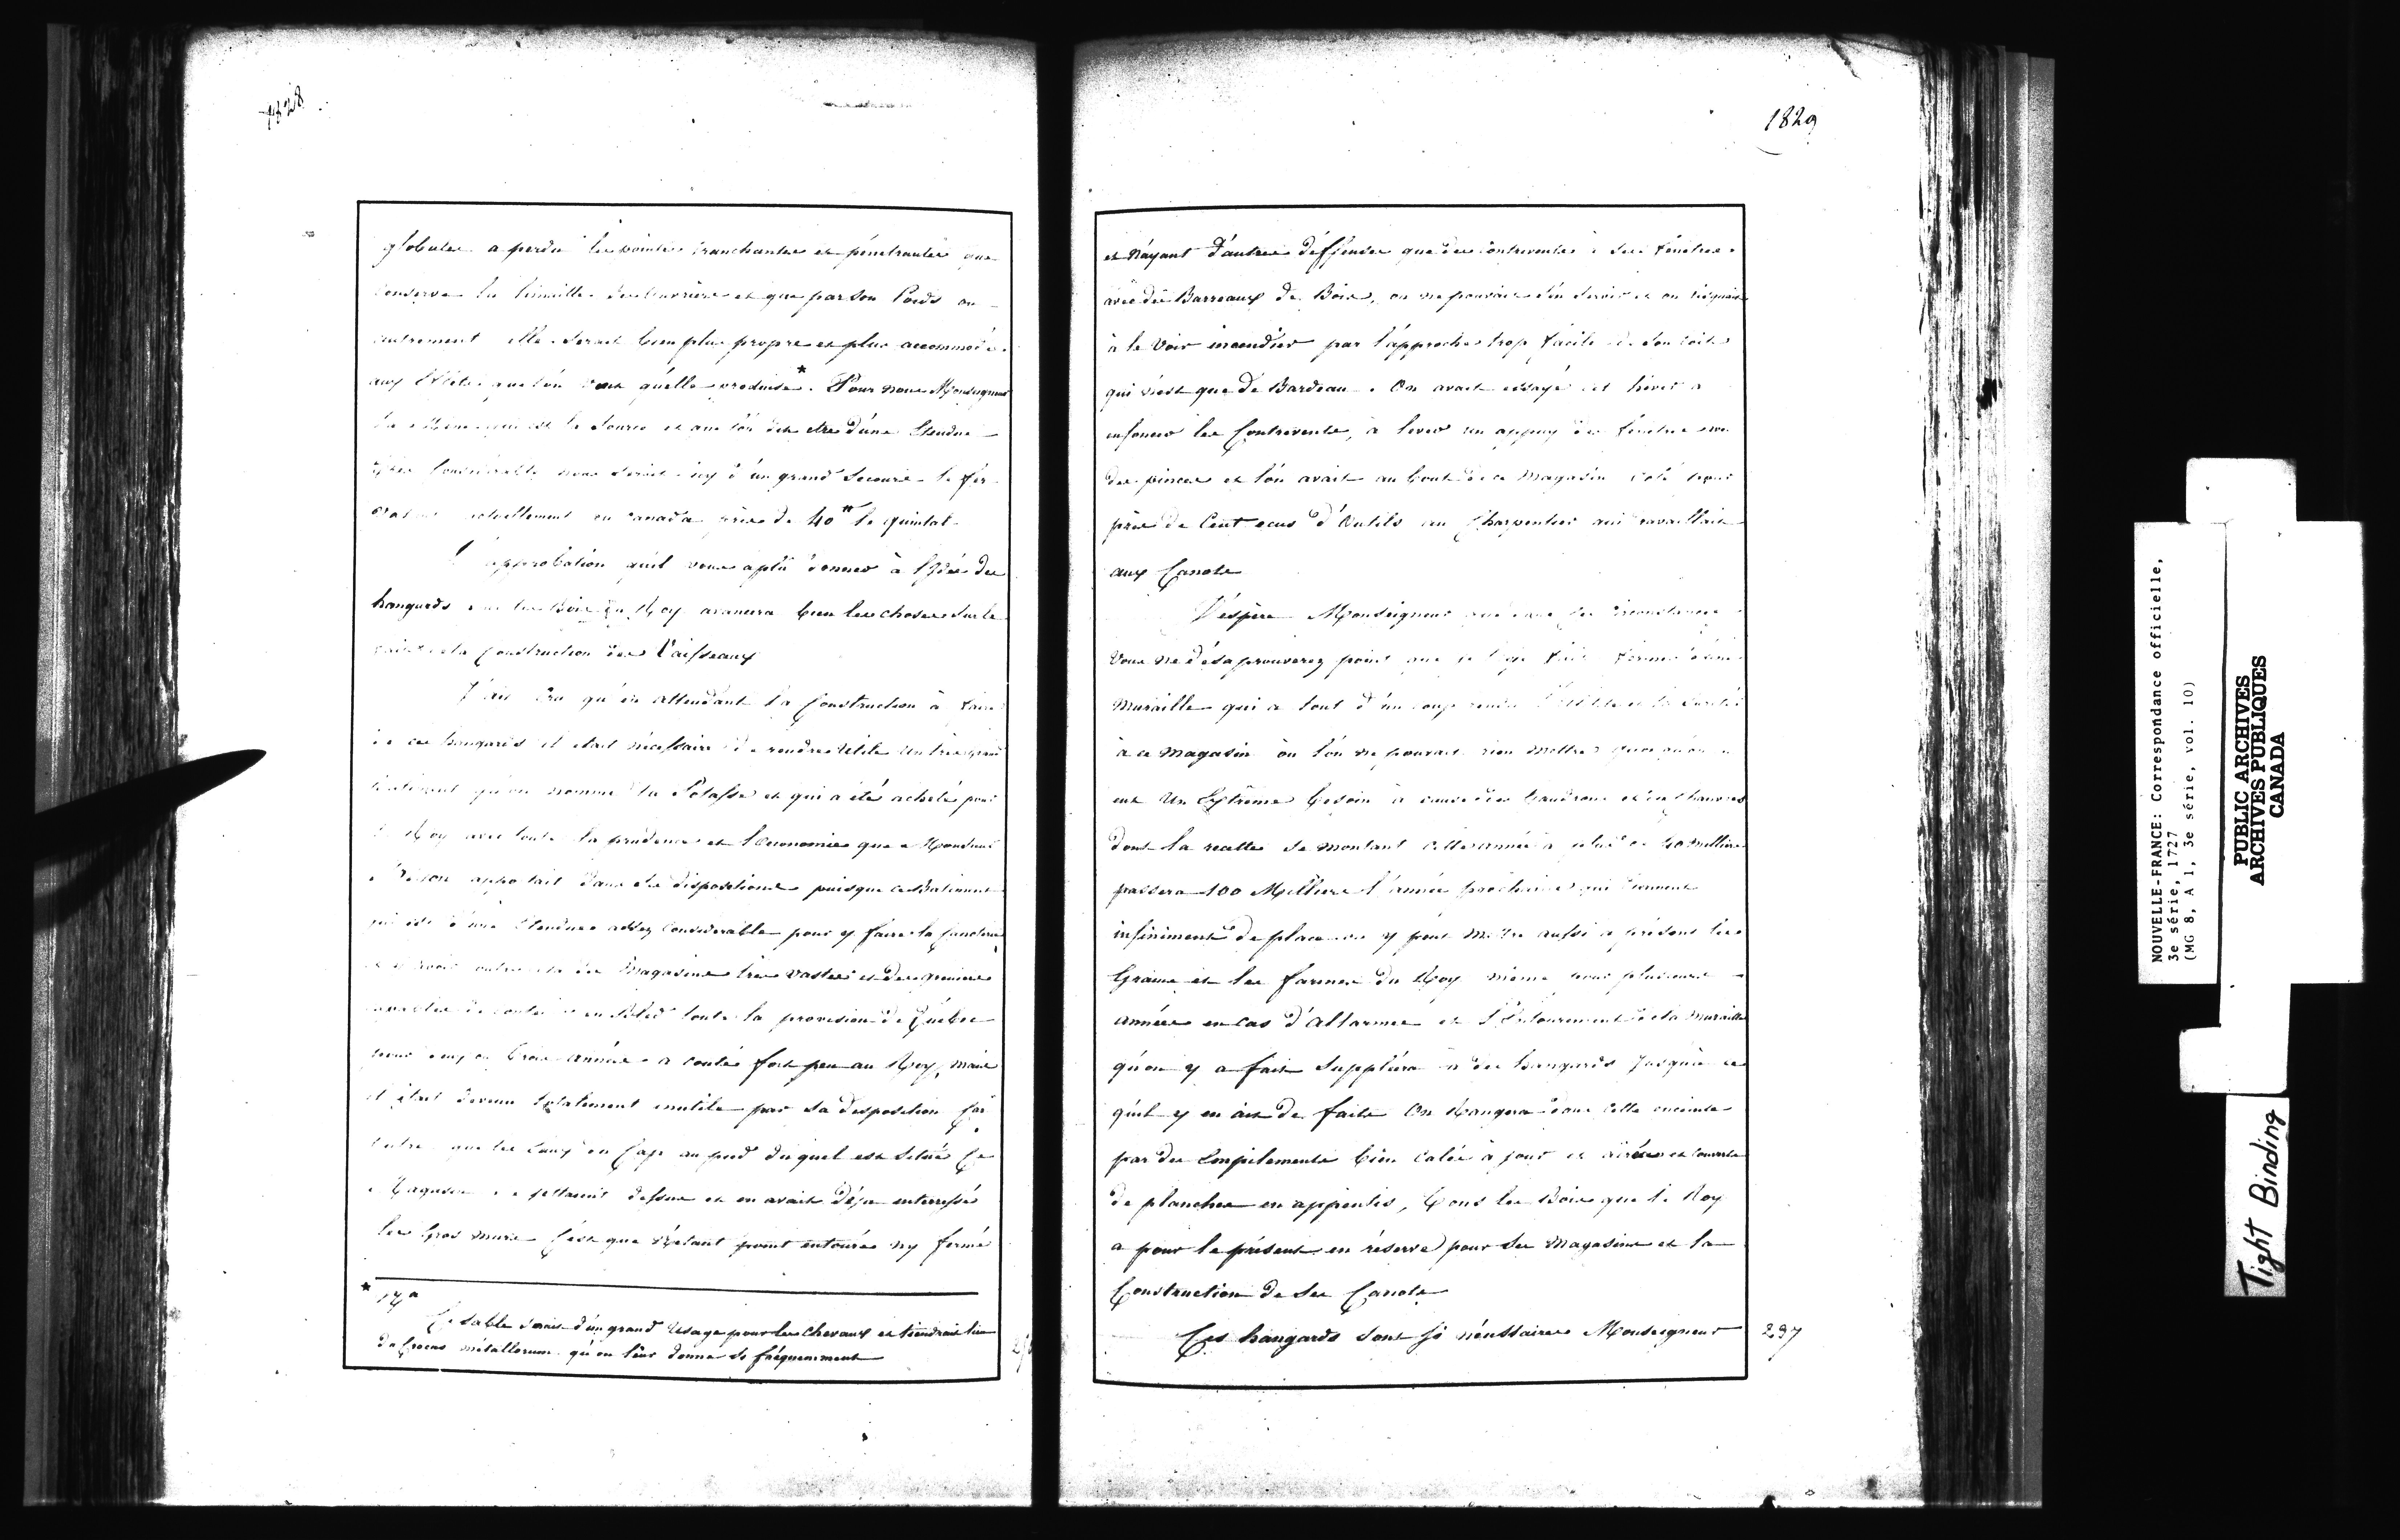 1828
globules a perdu les pointes tranchantes et pénétrantes que
conserve la limaille des ouvriers et que par son Poids ou
autrement elle serait bien plus propre et plus accommodée
aux Effets que l'on veut qu'elle produise*. Pour nous Monseigneur
la source et que l'on dit etre d'une Etendue
très Considérable nous serait icy d'un grand secours le fer
actuellement en Canada près de 40# le quintal
L'approbation qu'il vous a plû donner à l'Idée des
hangards les Bois du Roy avancera bien les choses sur le
la Construction des Vaisseaux
J'ais Cru qu'en attendant la Construction à faire
de ces hangards il était nécessaire de rendre Utile Un très grand
batiment qu'on nomme la Potasse et qui a été acheté pour
le Roy avec toute la prudence et l'Economie que Monsieur
apportait dans ses dispositions puisque ce Batiment
qui est d'une Etendue assez Considerable pour y faire la fonderie
et avoir outre cela des Magasins très vastes et des greniers
toute la provision de Québec
pour deux ou trois années a coûté fort peu au Roy, mais
il était devenu totalement inutile par sa disposition Car
outre que les Eaux du Cap au pied duquel est situé Ce
Magasin se jettaient dessus et en avait déja interressé
les Gros murs C'est que n'étant point entourée ny fermé
*
Ce sable serait d'un grand Usage pour les Chevaux et tiendrait lieu
du Crocus métallorum qu'on leur donne si fréquemment
1829
et N'ayant d'autres déffenses que des Contrevents à ses fenetres
avec des Barreaux de Bois, on ne pouvait s'en servir et on risquait
à le Voir incendier par l'approche trop facile de son toit
qui n'est que de Bardeau. On avait essayé cet hiver a
enfoncer les Contrevents, à lever un appuy des fenetres avec
des pinces et l'on avait au bout de ce Magasin volé pour
près de Cent ecus d'Outils au Charpentier qui travaillait
aux Canots
J'espère Monseigneur que dans ces circonstances
Vous ne désaprouverez point que je l'aye fait fermer d'une
Muraille qui a tout d'un coup rendu l'Utilité et la sureté
à ce Magasin où l'on ne pouvait rien mettre quoi qu'on
eut Un Extrême besoin à cause des Gaudrons et des Chanvres
dont la recette se montant cette année à plus de 40 milliers
passera 100 Milliers l'année prochaine qui tiennent
infiniment de place on y peut Mettre aussi a présent les
Grains et les farines du Roy même pour plusieurs
années en cas d'allarmes et l'Entourement de la Muraille
qu'on y a fait Suppléra à des hangards Jusqu'à ce
qu'il y en ait de faits On Rangera dans cette enceinte
par des Empilements bien Calés à jour et airées et Couverts
de planches en appentis, Tous les Bois que le Roy
a pour le présent en réserve pour ses Magasins et la
Construction de ses Canots
Ces hangards sont si nécessaires Monseigneur
297
NOUVELLE-FRANCE: Correspondance officielle,
3e série, 1727
(MG 8, A 1, 3e série, vol. 10)
PUBLIC ARCHIVES
ARCHIVES PUBLIQUES
CANADA
Tight Binding